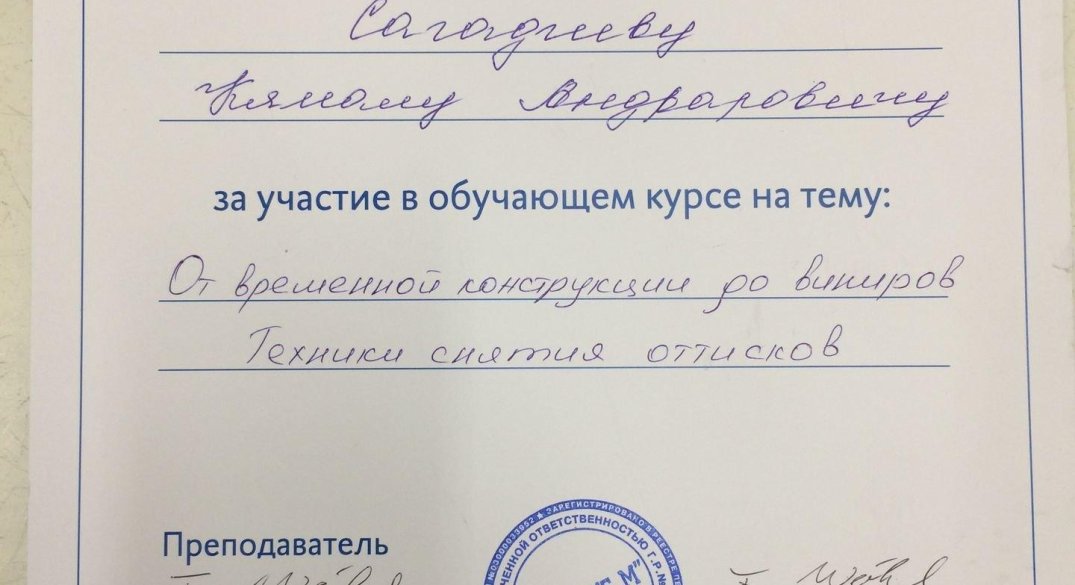 Сагадиеву
Кямалу Андраровичу
за участие в обучающем курсе на тему:
От временной конструкции до виниров
Техники снятия оттисков
ЗАРЕГИСТРИРОВАНО В РЕЕСТРЕ
ЧЕННОЙ ОТВЕТСТВЕННОСТЬЮ Г.Р.№
Преподаватель